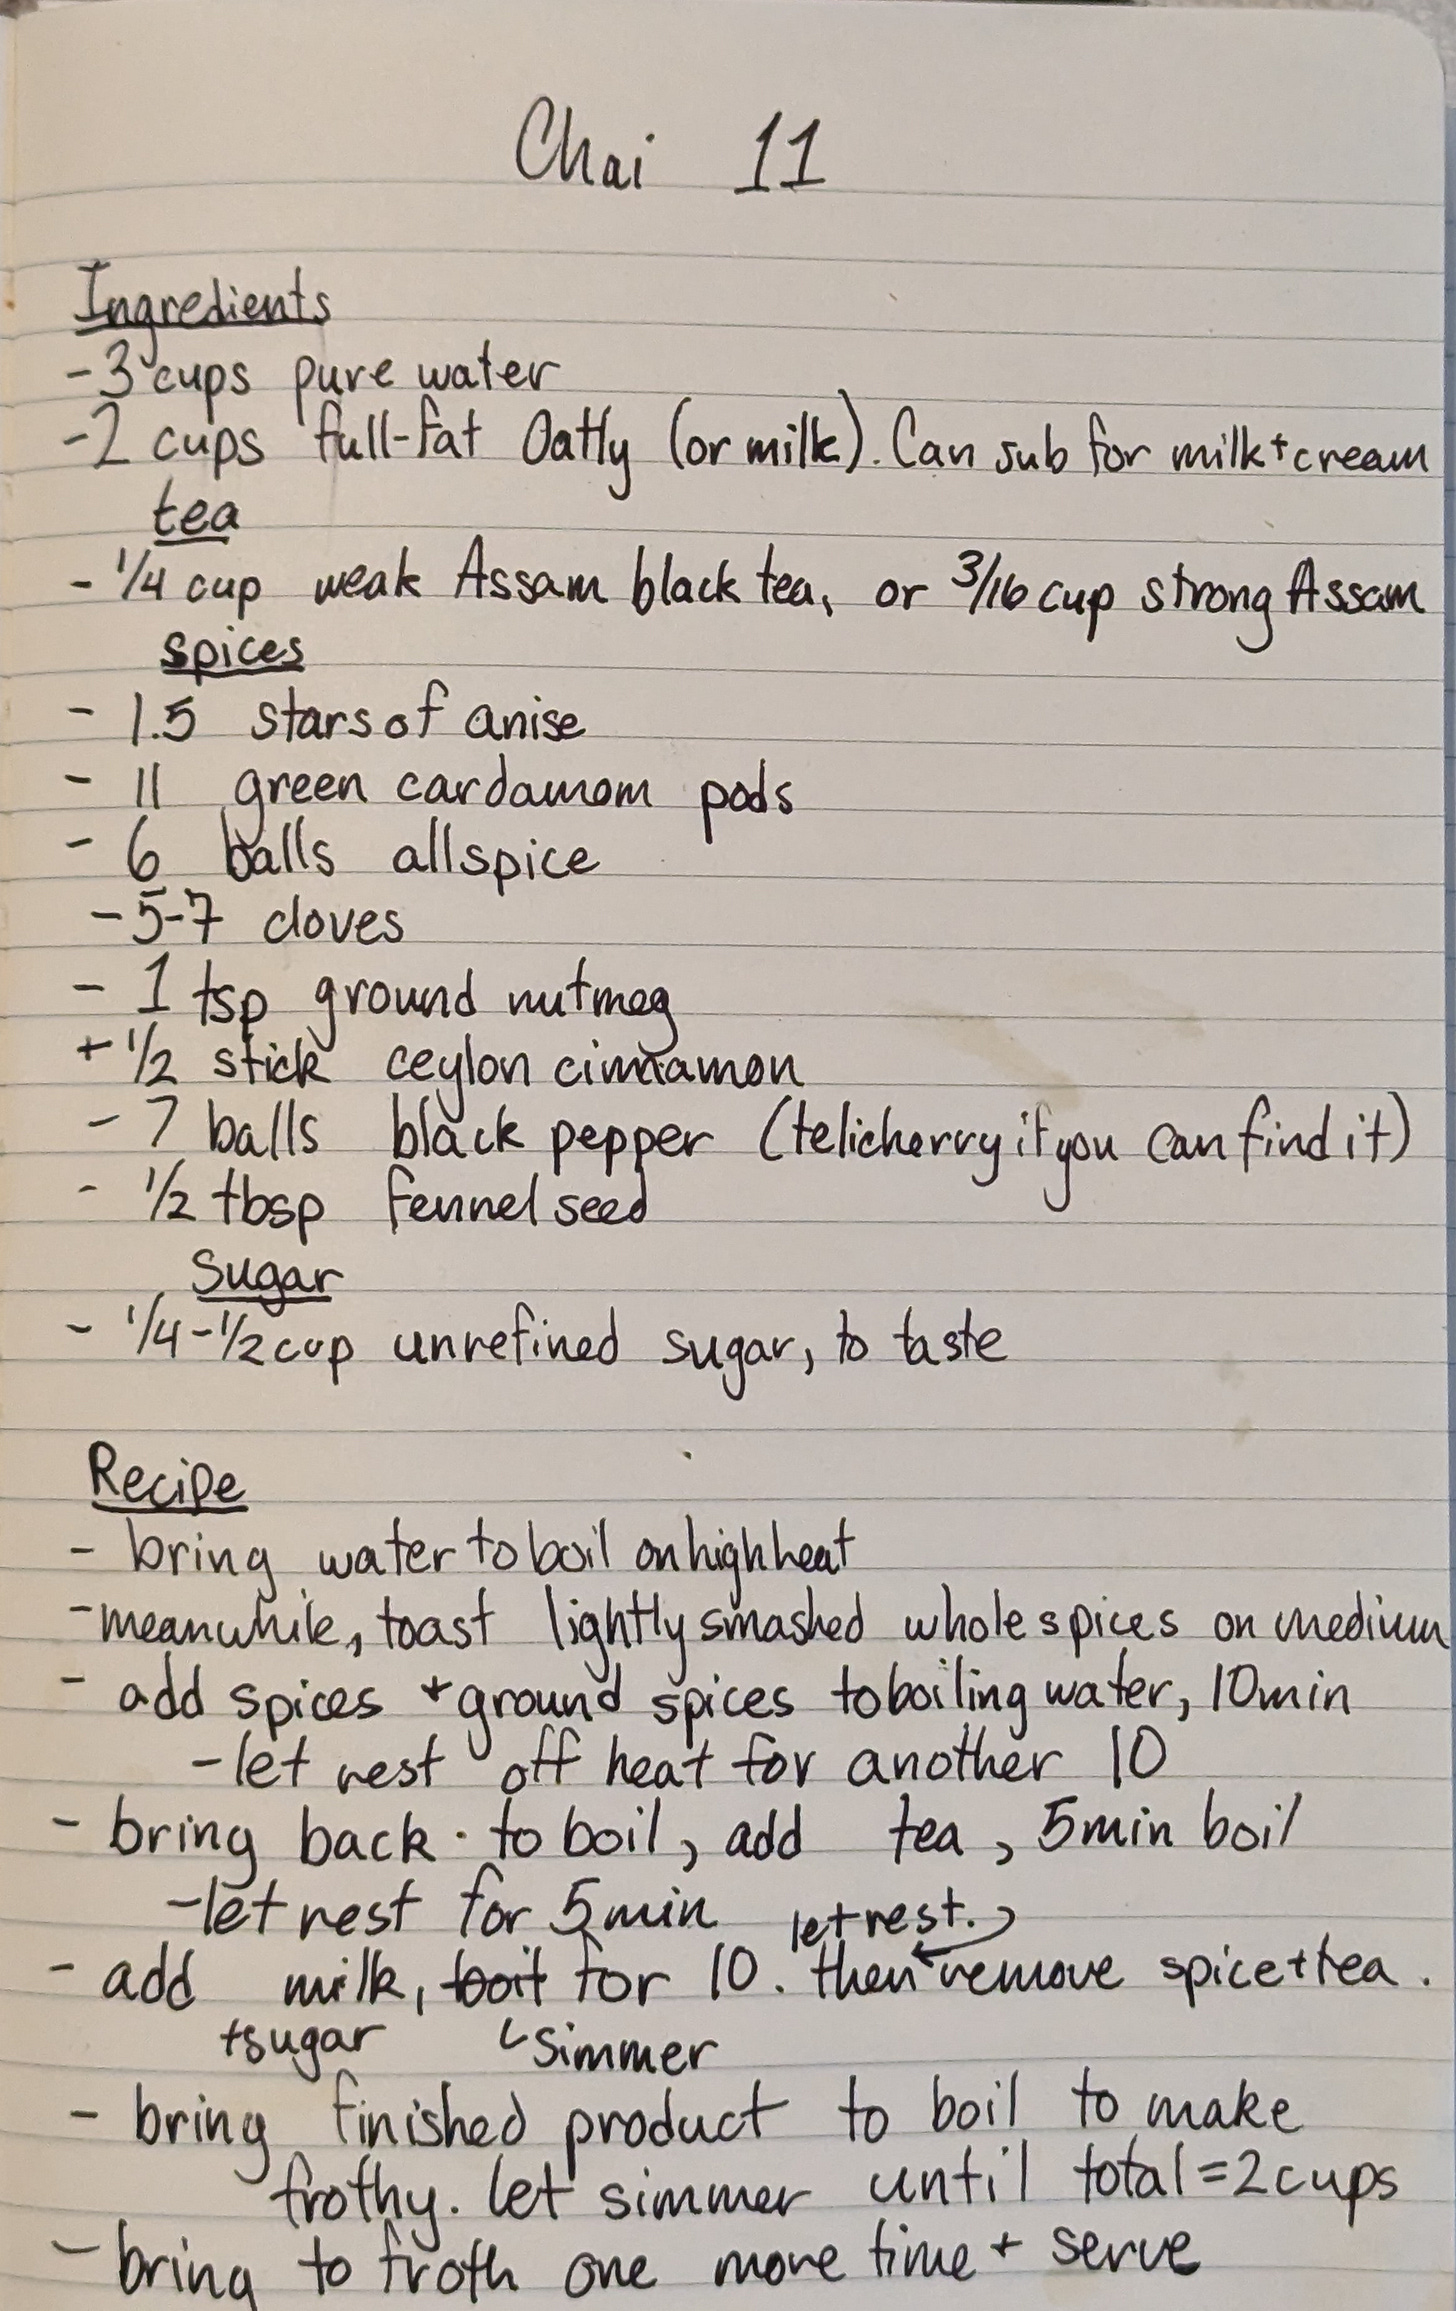 Chai 11
Ingredients
- 3 cups pure water
- 2 cups full-fat Oatly (or milk). Can sub for milk + cream
tea
- 1/4 cup weak Assam black tea, or 3/16 cup strong Assam
spices
- 1.5 stars of anise
- 11 green cardamom pods
- 6 balls allspice
- 5-7 cloves
- 1 tsp ground nutmeg
+ 1/2 stick ceylon cinnamon
- 7 balls black pepper (telicherry if you can find it)
- 1/2 tbsp fennel seed
Sugar
- 1/4 - 1/2 cup unrefined sugar, to taste
Recipe
- bring water to boil on high heat
- meanwhile, toast lightly smashed whole spices on medium
- add spices + ground spices to boiling water, 10 min
- let rest off heat for another 10
- bring back to boil, add tea, 5 min boil
- let rest for 5 min let rest.
- add milk, boil for 10. then remove spice + tea.
+ sugar simmer
- bring finished product to boil to make
frothy. let simmer until total = 2 cups
- bring to froth one more time + serve